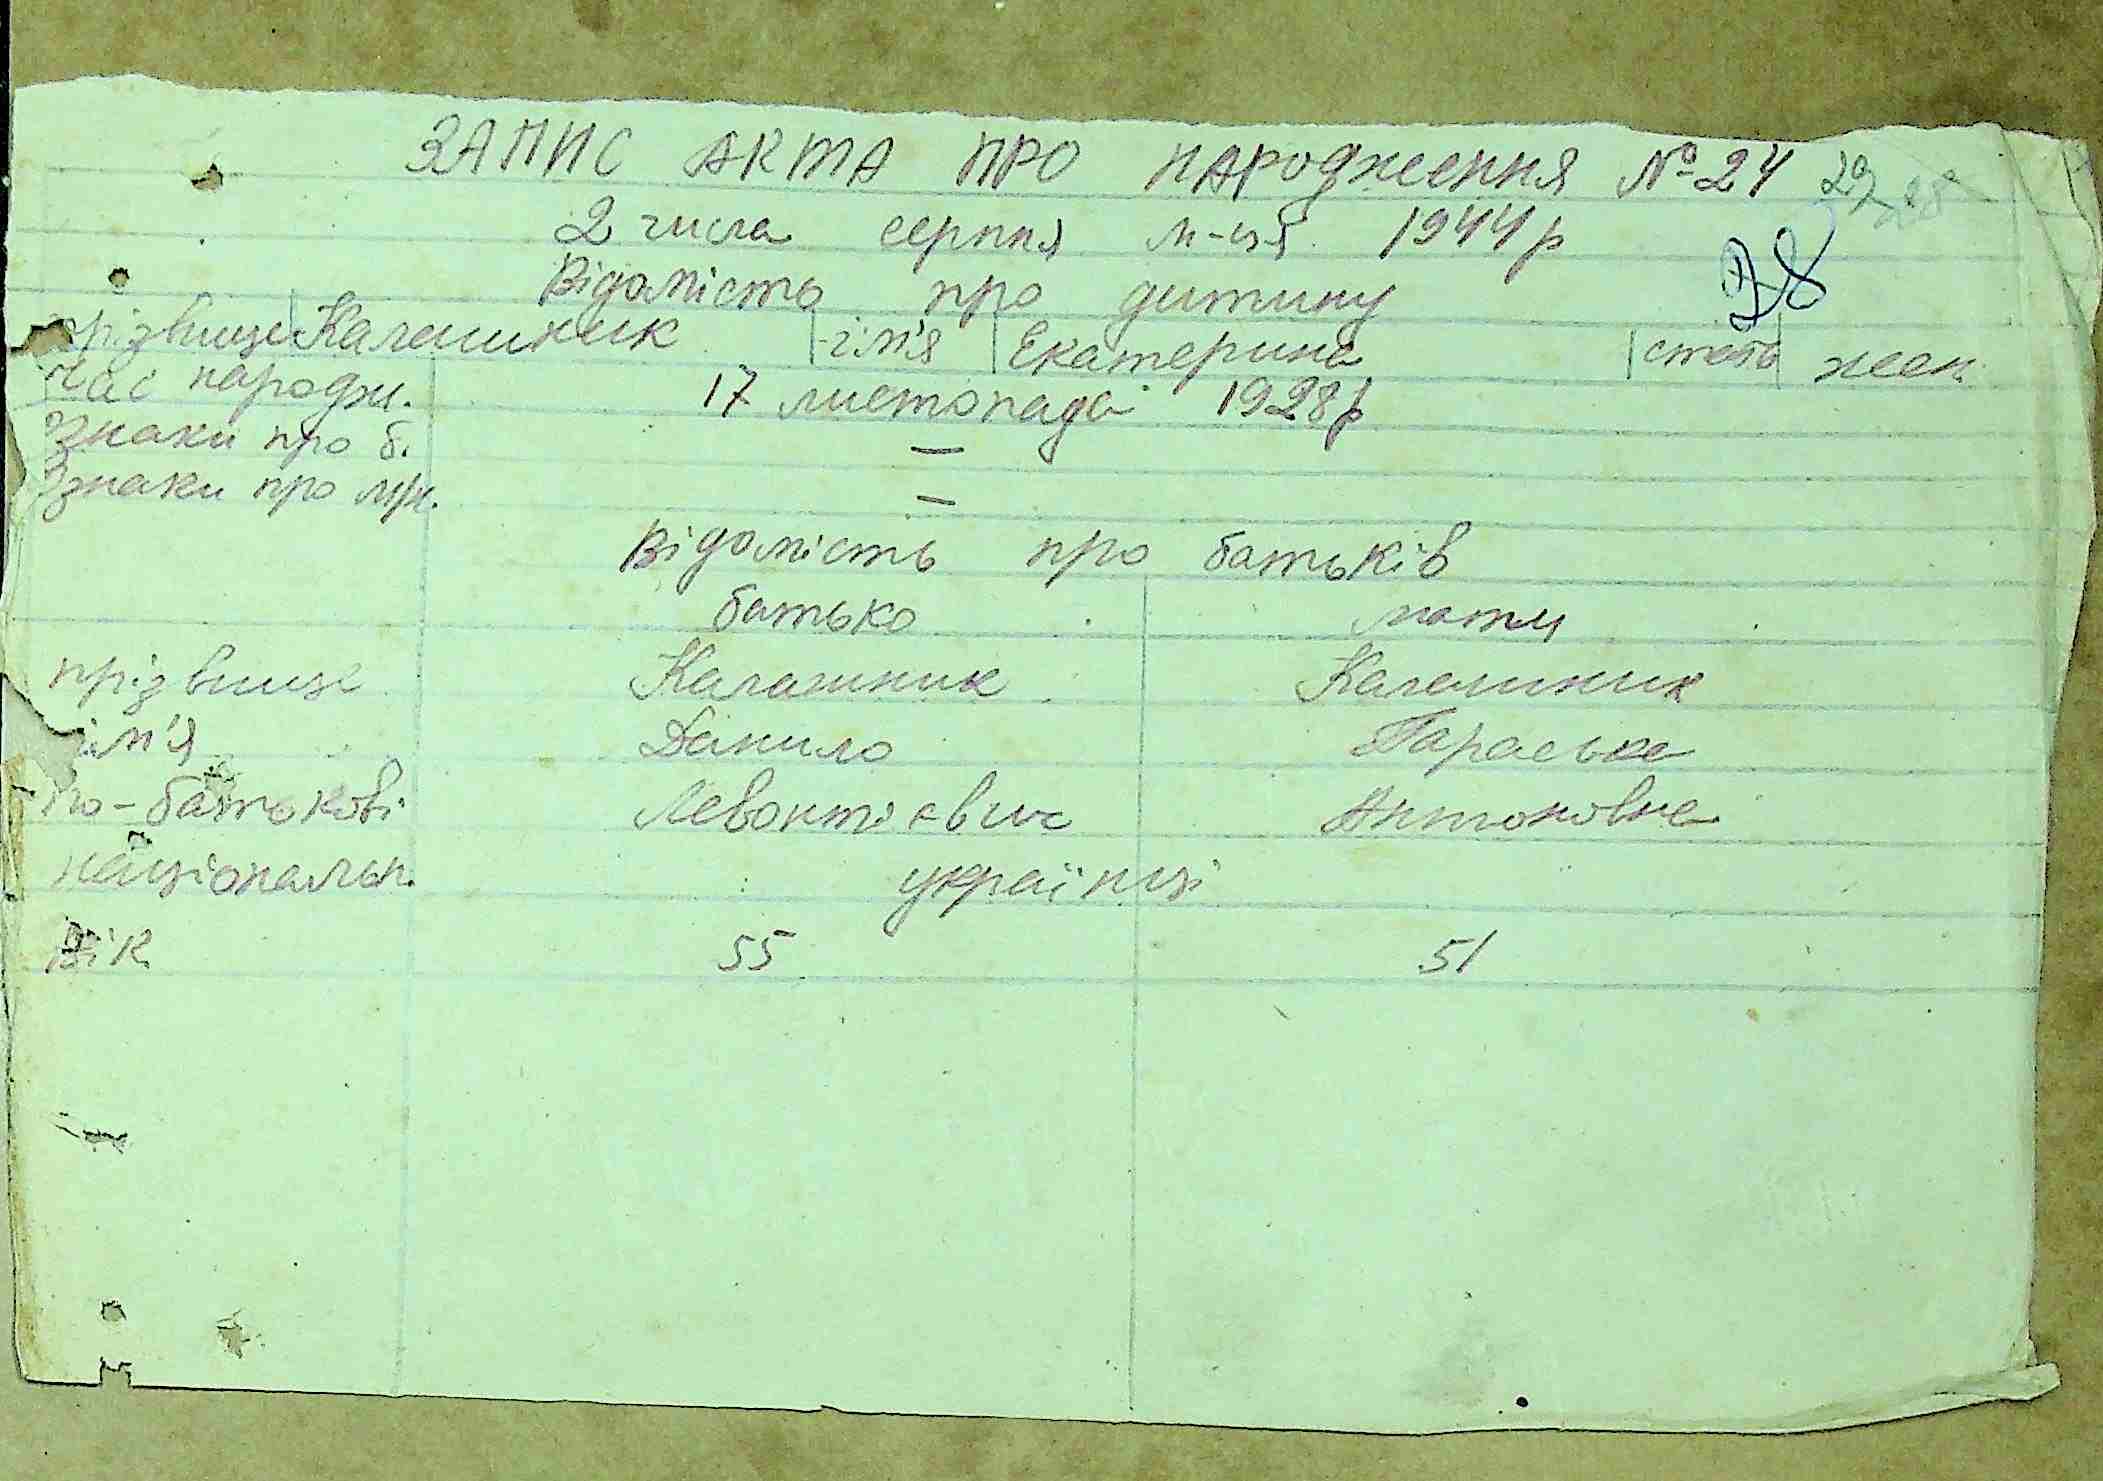 ЗАПИС АКТА ПРО НАРОДЖЕННЯ № 24 29
28
2 числа серпня м-ця 1944 р
38
Відомість про дитину
прізвище Калашник ім'я Екатерина стать жен.
Час народж. 17 листопада 1928 р
Знаки про б. —
Знаки про мр. —
Відомість про батьків
батько мати
прізвище Калашник Калашник
ім'я Данило Параська
по-батькові Левонтієвич Антоновна
національн. українці
Вік 55 51